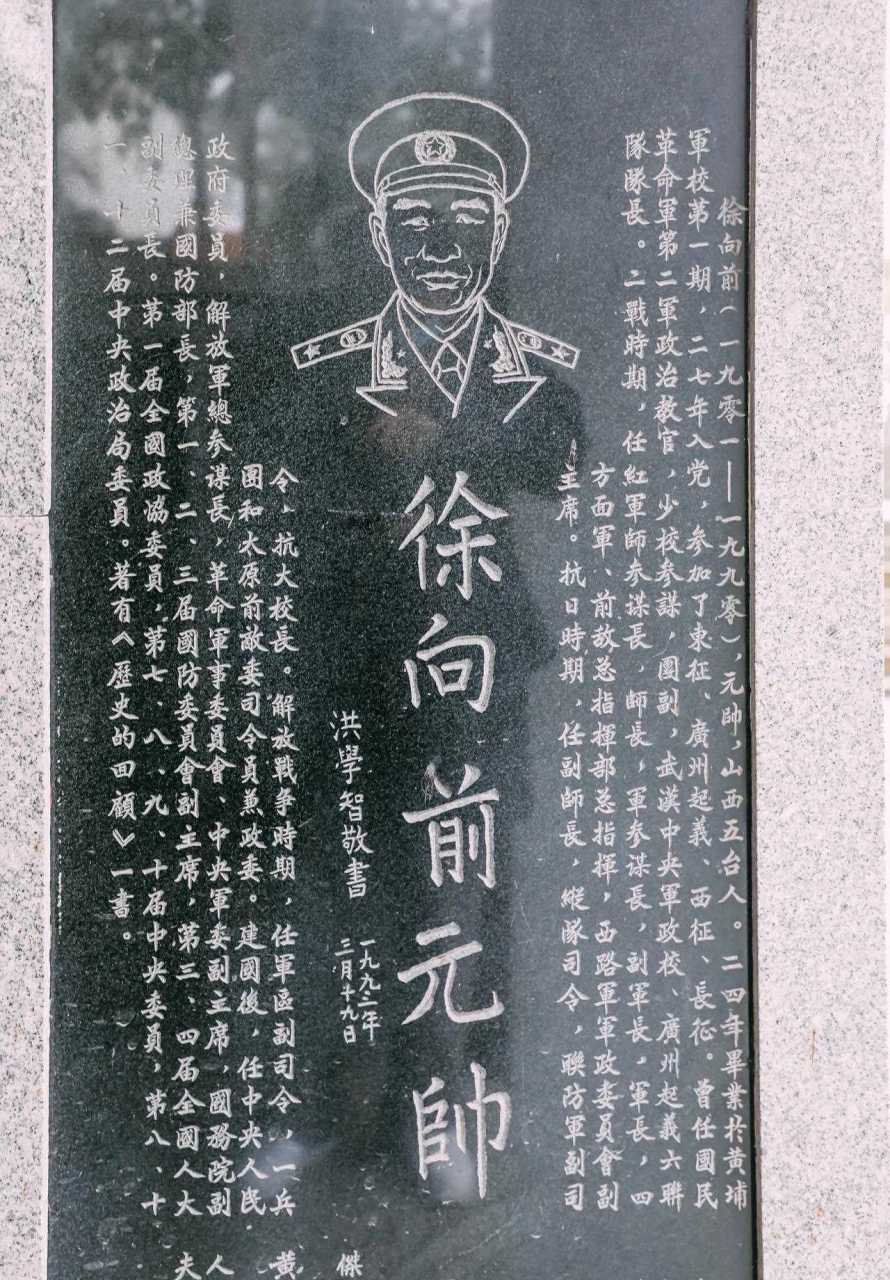 徐向前（一九零一——一九九零），元帥，山西五台人。二四年畢業於黃埔
軍校第一期，二七年入党，參加了東征、廣州起義、西征、長征。曾任國民
革命軍第二軍政治教官，少校參謀，團副，武漢中央軍政校、廣州起義六聯
隊隊長。二戰時期，任紅軍師參謀長，師長，軍參謀長，副軍長，軍長，四
方面軍、前敌总指揮部总指揮，西路軍軍政委員會副
主席。抗日時期，任副師長，縱隊司令，聯防軍副司
徐向前元帥
洪學智敬書
一九九三年
三月十九日
令，抗大校長。解放戰争時期，任軍區副司令，一兵
團和太原前敵委司令員兼政委。建國後，任中央人民
政府委員，解放軍總参谋長，革命軍事委員會、中央軍委副主席，國務院副
總理兼國防部長，第一、二、三届國防委員會副主席，第三、四届全國人大
副委員長。第一届全國政協委員，第七、八、九、十届中央委員，第八、十
一、十二届中央政治局委員。著有《歷史的回顧》一書。
傑
黃
人
夫